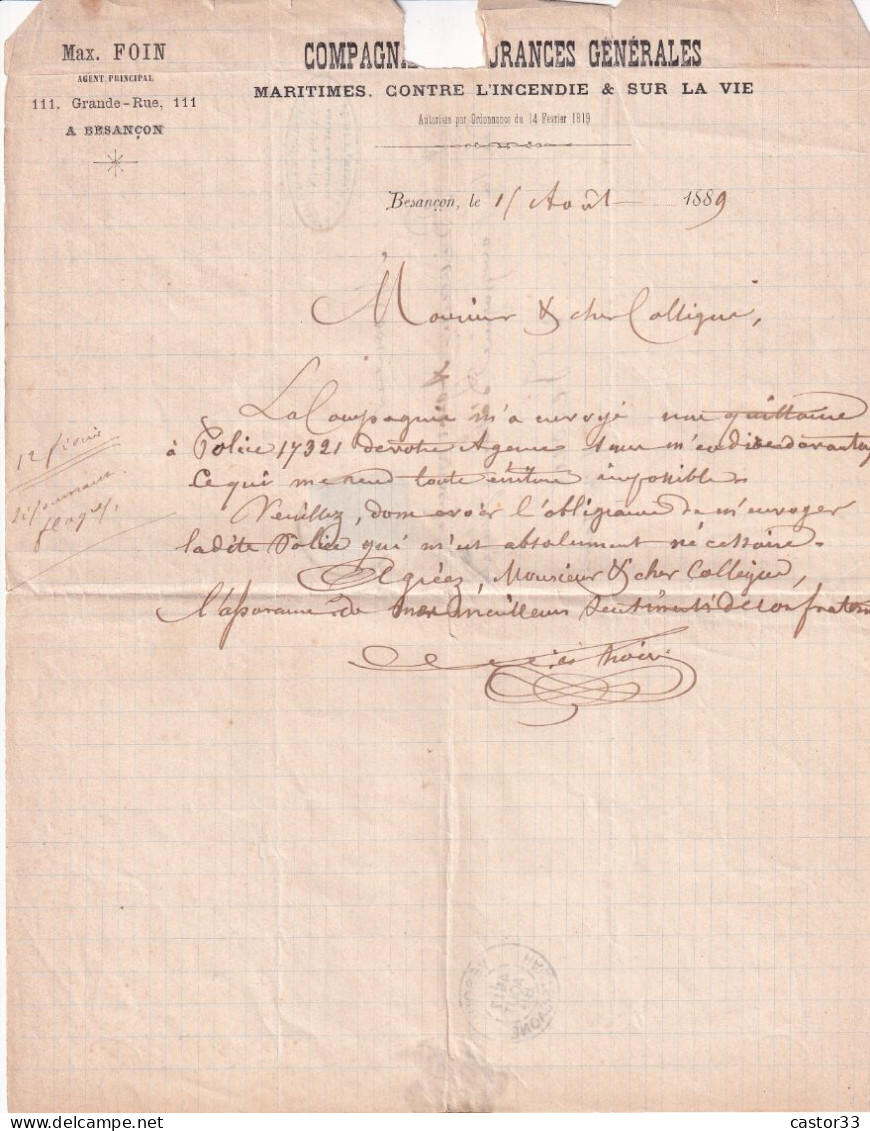 Max. FOIN
AGENT PRINCIPAL
111, Grande-Rue, 111
A BESANÇON
COMPAGN URANCES GÉNÉRALES
MARITIMES, CONTRE L'INCENDIE & SUR LA VIE
Autorisée par Ordonnance du 14 Février 1819
Besançon, le 15 Août 1889
Monsieur & cher Collègue,
La Compagnie m'a envoyé une quittance
à Police 17321 de votre Agence sans m'en dire davantag
ce qui me rend toute écriture impossible.
Veuillez, donc avoir l'obligeance de m'envoyer
ladite Police qui m'est absolument nécessaire.
Agréez Monsieur & cher Collègue,
l'assurance de mes meilleurs sentiments de confratern
12 février
castor33